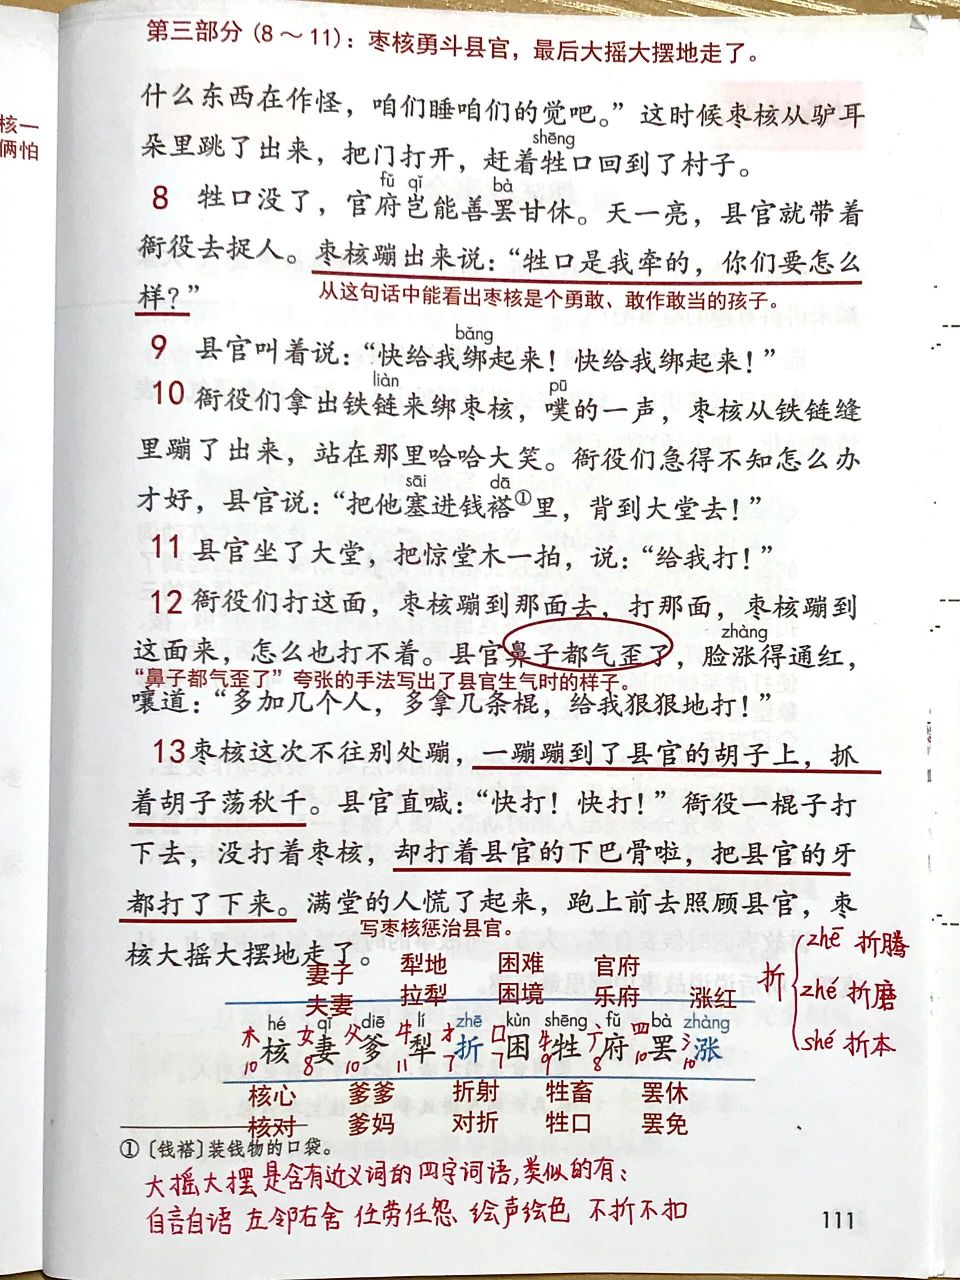 第三部分（8～11）：枣核勇斗县官，最后大摇大摆地走了。
核一
俩怕
什么东西在作怪，咱们睡咱们的觉吧。”这时候枣核从驴耳
shēng
朵里跳了出来，把门打开，赶着牲口回到了村子。
fǔ qǐ bà
8 牲口没了，官府岂能善罢甘休。天一亮，县官就带着
衙役去捉人。枣核蹦出来说：“牲口是我牵的，你们要怎么
样？”
从这句话中能看出枣核是个勇敢、敢作敢当的孩子。
bǎng
9 县官叫着说：“快给我绑起来！快给我绑起来！”
liàn pū
10 衙役们拿出铁链来绑枣核，噗的一声，枣核从铁链缝
里蹦了出来，站在那里哈哈大笑。衙役们急得不知怎么办
sāi dā
才好，县官说：“把他塞进钱褡①里，背到大堂去！”
11 县官坐了大堂，把惊堂木一拍，说：“给我打！”
12 衙役们打这面，枣核蹦到那面去，打那面，枣核蹦到
zhàng
这面来，怎么也打不着。县官鼻子都气歪了，脸涨得通红，
“鼻子都气歪了”夸张的手法写出了县官生气时的样子。
嚷道：“多加几个人，多拿几条棍，给我狠狠地打！”
13 枣核这次不往别处蹦，一蹦蹦到了县官的胡子上，抓
着胡子荡秋千。县官直喊：“快打！快打！”衙役一棍子打
下去，没打着枣核，却打着县官的下巴骨啦，把县官的牙
都打了下来。满堂的人慌了起来，跑上前去照顾县官，枣
写枣核惩治县官。
核大摇大摆地走了。
妻子 犁地 困难 官府
夫妻 拉犁 困境 乐府 涨红
hé qī diē lí zhē kùn shēng fǔ bà zhàng
木 女 父 牛 扌 口 牜 广 罒 氵
核 妻 爹 犁 折 困 牲 府 罢 涨
10 8 10 11 7 7 9 8 10 10
核心 爹爹 折射 牲畜 罢休
核对 爹妈 对折 牲口 罢免
折
zhē 折腾
zhé 折磨
shé 折本
①〔钱褡〕装钱物的口袋。
大摇大摆是含有近义词的四字词语，类似的有：
自言自语 左邻右舍 任劳任怨 绘声绘色 不折不扣
111